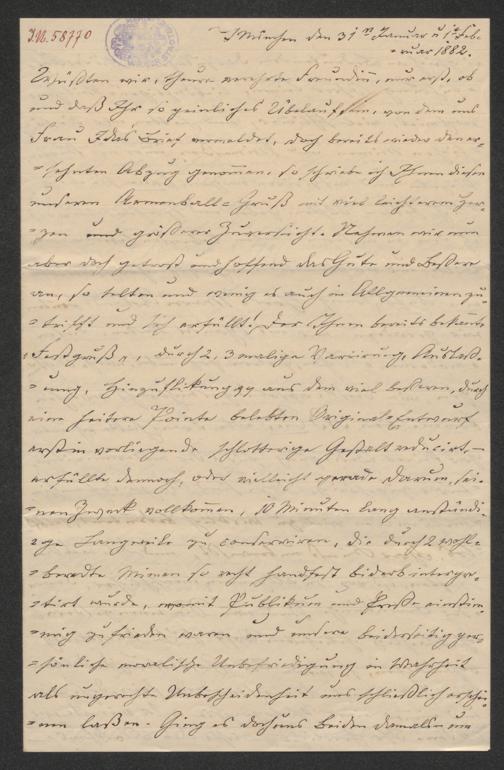 I.N. 58770
München den 31ten Januar u 1ten Feb-
ruar 1882.
Wüßten wir, theure verehrte Freundin, nur erst, ob
und daß Ihr so peinliches Übelaufsein, von dem uns
Frau Idas Brief vermeldet, doch bereits wieder den er-
=sehnten Abzug genommen, so schriebe ich Ihnen diesen
unseren Armenball=Gruß mit viel leichterem Her-
=zen und größerer Zuversicht. Nehmen wir nun
aber doch getrost und hoffend das Gute und Bessere
an, so selten und wenig es auch im Allgemeinen zu
=trifft und sich erfüllt! Der Ihnen bereits bekannte
"Festgruß", durch 2, 3 malige Variirung, Auslass-
=ung, Hinzuflikung aus dem viel besseren, durch
eine heitere Pointe belebten Original=Entwurf
erst in vorliegende, schlotterige Gestalt reducirt, -
erfüllte dennoch, oder vielleicht gerade darum, sei-
nen Zweck vollkommen, 10 Minuten lang anständi-
=ge Langeweile zu conserviren, die durch 2 wohl-
=beredte Mimen so recht handfest bieder interpre-
=tirt wurde, womit Publikum und Presse einstim-
=mig zufrieden waren und unsere beiderseitig per-
=sönliche moralische Unbefriedigung in Wahrheit
als ungerechte Unbescheidenheit uns schließlich erschei-
=nen laßen. Ging es doch uns Beiden damals um